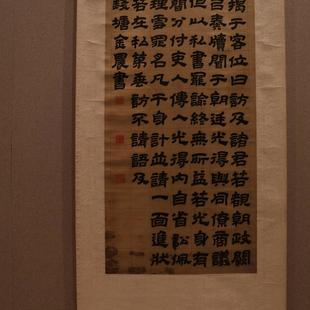 揭于客位曰訪及諸君若覩朝政闕
㠯奏牘聞于朝廷光得與同僚商議
但以私書寵諭終無所益若光身有
簡分付吏人傳入光得內自省訟佩
理雪罪名凡干身計並請一面進狀
若在私第垂訪不請語及
錢塘金農書